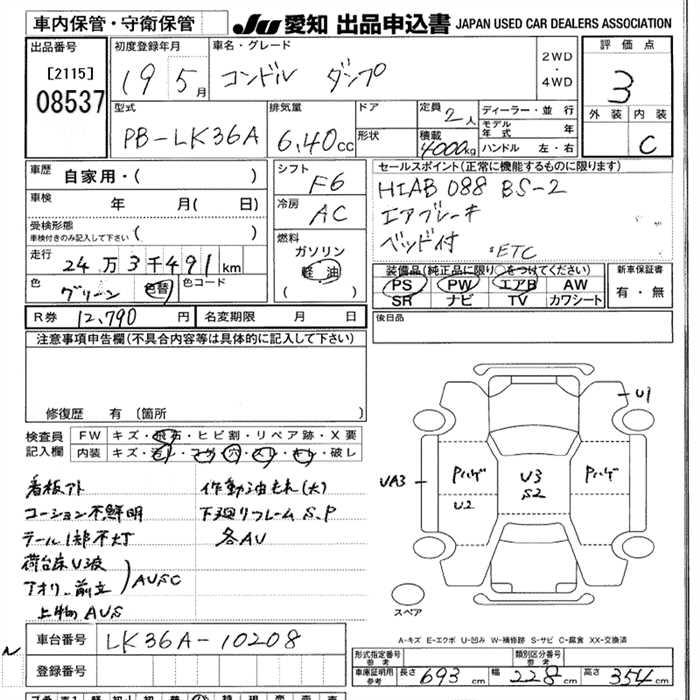 車内保管・守衛保管
JU 愛知 出品申込書 JAPAN USED CAR DEALERS ASSOCIATION
出品番号
[2115]
08537
初度登録年月
19 5月
車名・グレード
コンドル ダンプ
2WD
・
4WD
評価点
3
外装 内装
C
型式
PB-LK36A
排気量
6,40cc
ドア
形状
定員 2人
積載 4000kg
ディーラー・並行
モデル年式 年
ハンドル 左・右
車歴 自家用・( )
車検 年 月( 日)
受検形態
車検付きのみ記入して下さい ( )
走行 24万3千491km
色 グリーン 色替 色コード
シフト
F6
冷房
AC
燃料
ガソリン
軽・油
( )
セールスポイント(正常に機能するものに限ります)
HIAB 088 BS-2
エアブレーキ
ベッド付
:ETC
装備品(純正品に限り○をつけてください)
PS PW エアB AW
SR ナビ TV カワシート
新車保証書
有・無
R券 12,790円 名変期限 月 日
後日品
注意事項申告欄(不具合内容等は具体的に記入して下さい)
修復歴 有 (箇所 )
検査員
記入欄
FW キズ・飛石・ヒビ割・リペア跡・X要
内装 キズ・汚レ・コゲ・穴・スレ・キレ・破レ
看板アト
コーション不鮮明
テール1部不灯
荷台床U3波
アオリ、前立
上物AUS
AUSC
作動油もれ(大)
下廻りフレームS、P
各AU
U1
UA3
Pハゲ
U2
U3
S2
Pハゲ
スペア
A-キズ E-エクボ U-凹み W-補修跡 S-サビ C-腐食 XX-交換済
車台番号 LK36A-10208
登録番号
形式指定番号
参考
類別区分番号
参考
車庫証明用
参考
長さ 693cm 幅 228cm 高さ 354cm